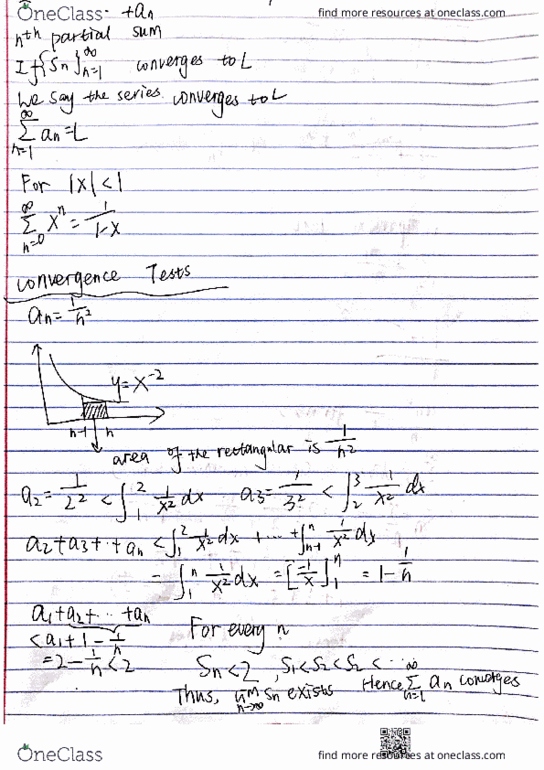 OneClass
find more resources at oneclass.com
· +aₙ
nᵗʰ partial sum
If {Sn}ₙ₌₁^∞ converges to L
We say the series converges to L
∑ₙ₌₁^∞ aₙ=L
For |x|<1
∑ₙ₌₀^∞ xⁿ = 1/1-x
Convergence Tests
aₙ= 1/n²
y=x⁻²
n-1 n
area of the rectangular is 1/n²
a₂= 1/2² < ∫₁² 1/x² dx a₃= 1/3² < ∫₂³ 1/x² dx
a₂+a₃+··+aₙ < ∫₁² 1/x² dx +...+∫ₙ₋₁ⁿ 1/x² dx
= ∫₁ⁿ 1/x² dx = [-1/x]₁ⁿ = 1- 1/n
a₁+a₂+·· +aₙ
<a₁+1- 1/n
=2- 1/n <2
For every n
Sn<2 , S₁<S₂<S₂<··
Thus, lim n→∞ Sn exists
Hence ∑ₙ₌₁^∞ aₙ converges
OneClass
find more resources at oneclass.com